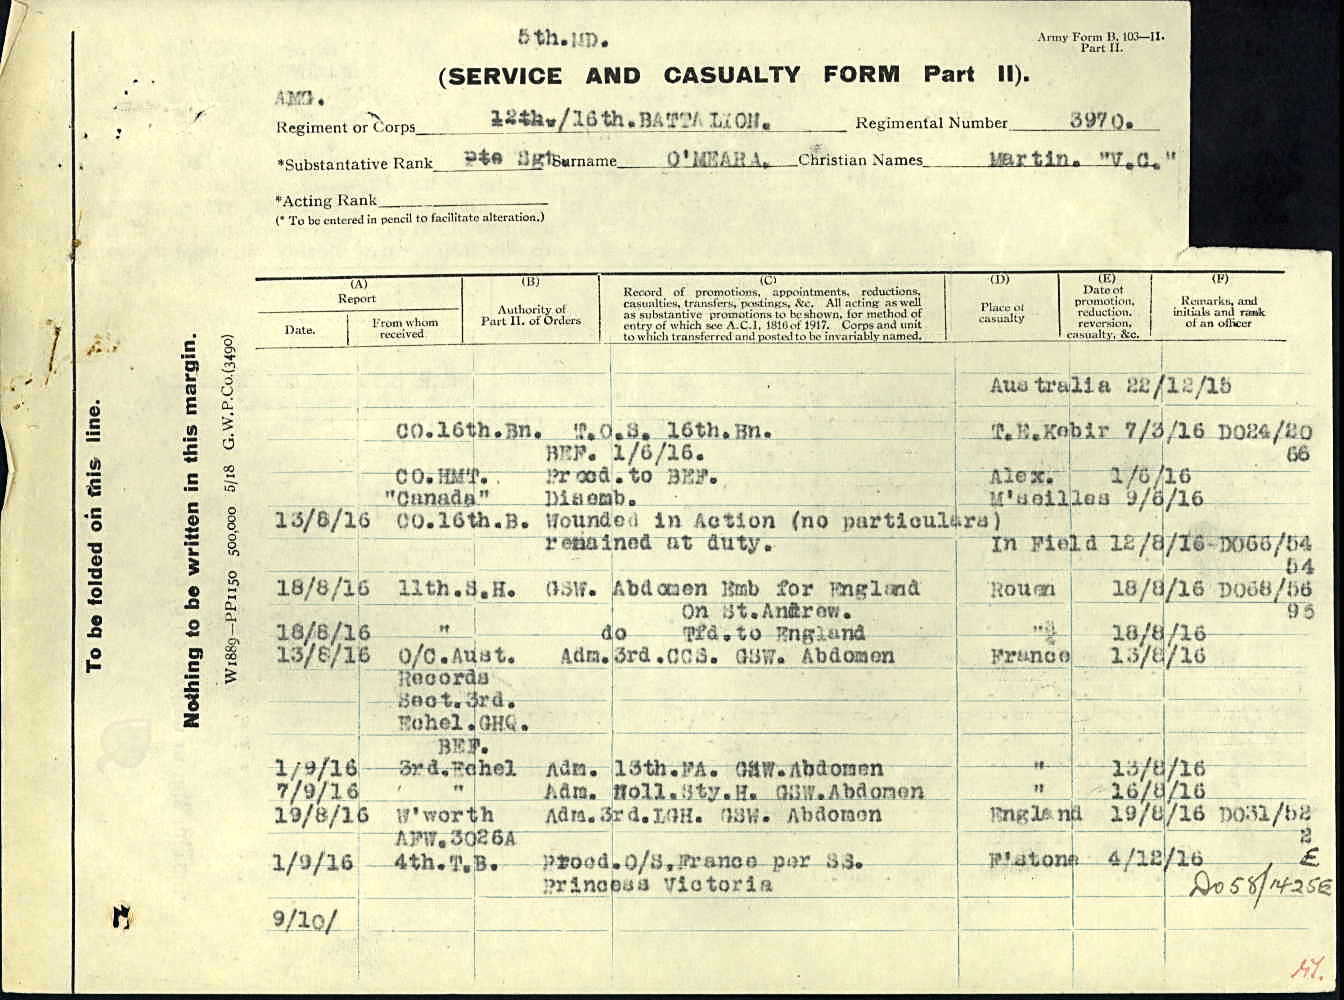 5th.MD.
Army Form B. 103—II.
Part II.
(SERVICE AND CASUALTY FORM Part II).
AMG.
Regiment or Corps 12th./16th.BATTALION. Regimental Number 3970.
*Substantative Rank Pte Sgt Surname O'MEARA. Christian Names Martin. "V.C."
*Acting Rank
(* To be entered in pencil to facilitate alteration.)
To be folded on this line.
Nothing to be written in this margin.
W1889—PP1150 500,000 5/18 G.W.P.Co.(3490)
(A) (B) (C) (D) (E) (F)
Report
Date.
From whom received
Authority of Part II. of Orders
Record of promotions, appointments, reductions,
casualties, transfers, postings, &c. All acting as well
as substantive promotions to be shown, for method of
entry of which see A.C.I, 1816 of 1917. Corps and unit
to which transferred and posted to be invariably named.
Place of casualty
Date of promotion, reduction. reversion, casualty, &c.
Remarks, and initials and rank of an officer
Australia 22/12/15
CO.16th.Bn. T.O.S. 16th.Bn. T.E.Kebir 7/3/16 DO24/20
BEF. 1/6/16. 66
CO.HMT. Procd.to BEF. Alex. 1/6/16
"Canada" Disemb. M'seilles 9/6/16
13/8/16 CO.16th.B. Wounded in Action (no particulars)
remained at duty. In Field 12/8/16 DO66/54
54
18/8/16 11th.S.H. GSW. Abdomen Emb for England Rouen 18/8/16 DO68/56
On St.Andrew. 95
18/8/16 " do Tfd.to England " 18/8/16
13/8/16 O/C.Aust. Adm.3rd.CCS. GSW. Abdomen France 13/8/16
Records
Sect.3rd.
Echel.GHQ.
BEF.
1/9/16 3rd.Echel Adm. 13th.FA. GSW.Abdomen " 13/8/16
7/9/16 " Adm. Woll.Sty.H. GSW.Abdomen " 16/8/16
19/8/16 W'worth Adm.3rd.LGH. GSW. Abdomen England 19/8/16 DO31/52
AFW.3026A 2
1/9/16 4th.T.B. Procd.O/S.France per SS. F'stone 4/12/16 E
Princess Victoria Do58/1425E
9/10/